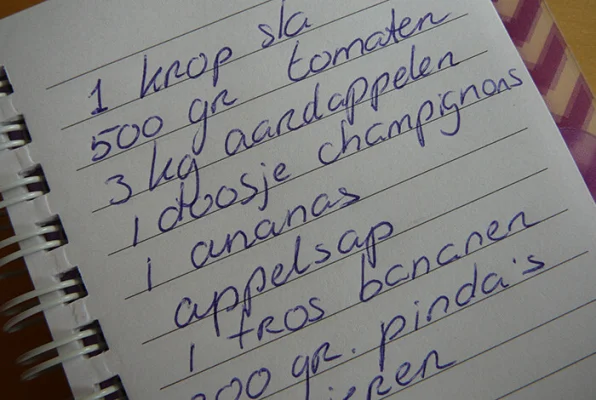 1 krop sla
500 gr tomaten
3 kg aardappelen
1 doosje champignons
1 ananas
appelsap
1 tros bananen
gr. pinda's